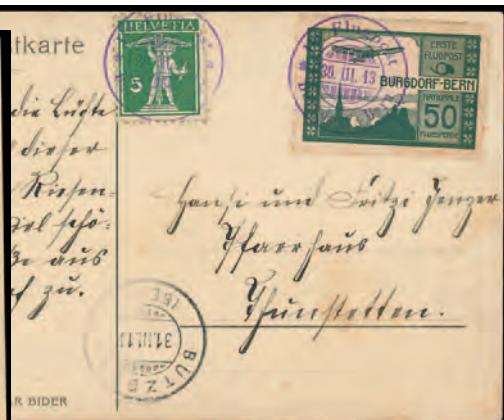 tkarte
HELVETIA
5
Flugpost
30. III. 13
ERSTE
FLUGPOST
BURGDORF-BERN
NATIONALE
50
FLUGSPENDE
die Lüfte
dieser
Riesen-
schö-
aus
zu.
Hansi und Fritzi Jenzer
Pfarrhaus
Thunstetten.
31.III.13
BÜTZB
R BIDER